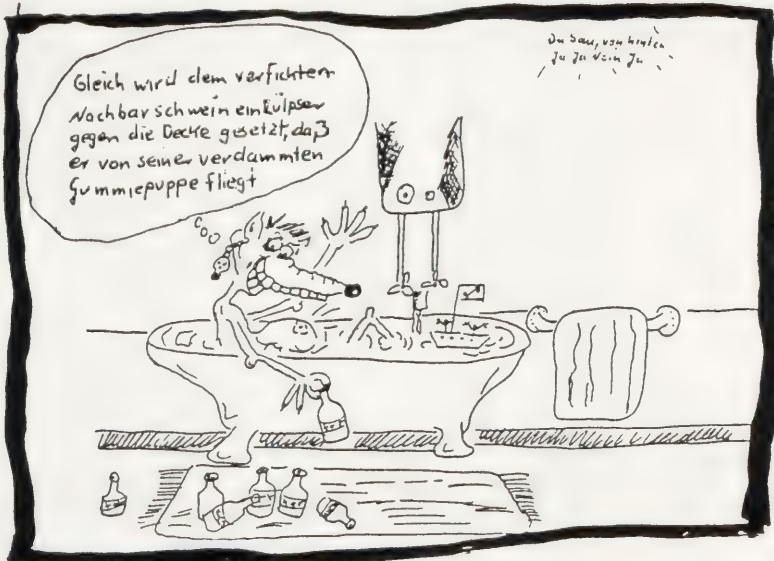 Gleich wird dem verfichten
Nachbarschwein ein Rülpser
gegen die Decke gesetzt, daß
er von seiner verdammten
Gummiepuppe fliegt
Du Sau, von hinten
Ja Ja Nein Ja